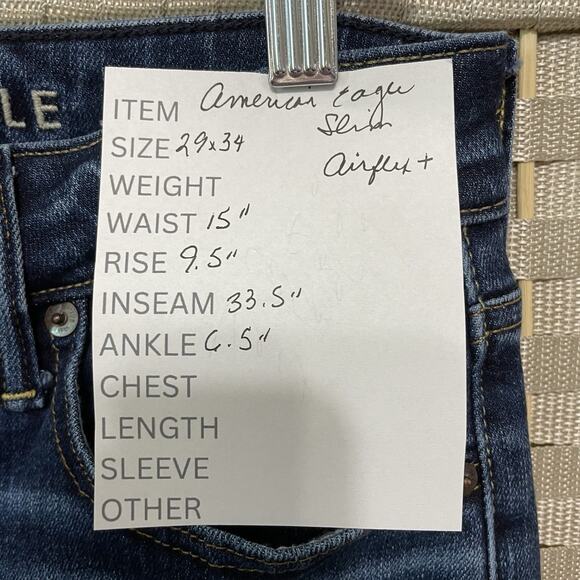 LE
ITEM American Eagle
Slim
SIZE 29x34
Airflex +
WEIGHT
WAIST 15"
RISE 9.5"
INSEAM 33.5"
ANKLE 6.5"
CHEST
LENGTH
SLEEVE
OTHER